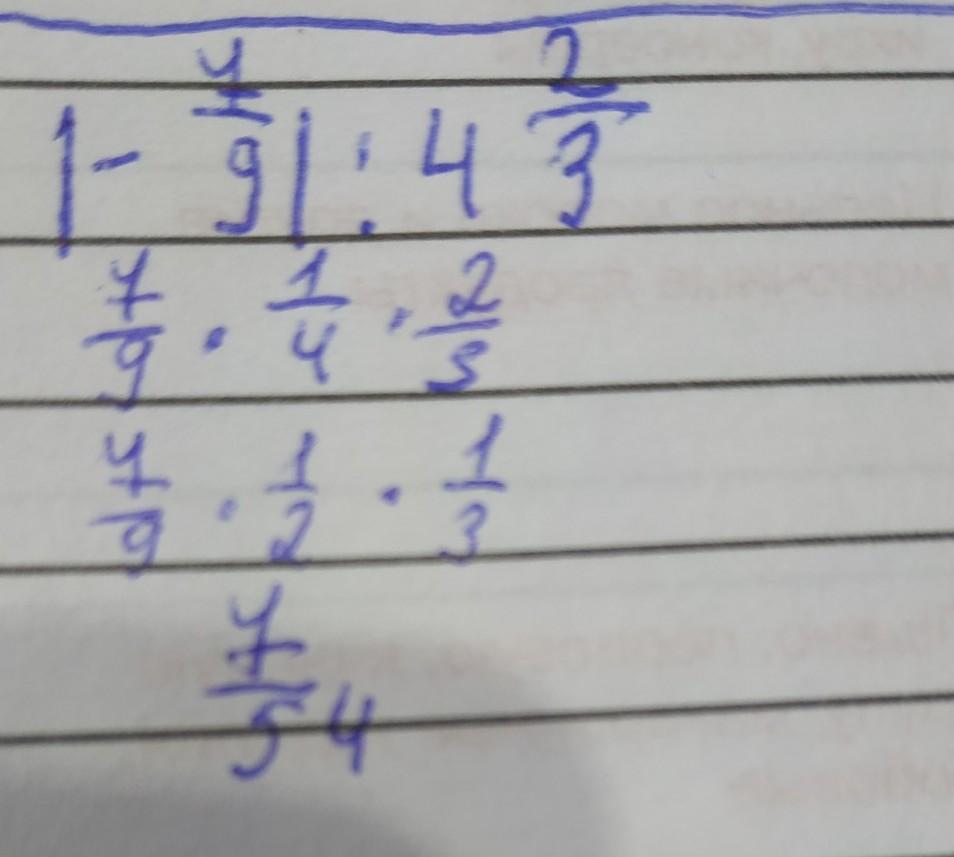 |- 7/9| : 4 2/3
7/9 · 1/4 · 2/3
7/9 · 1/2 · 1/3
7/54